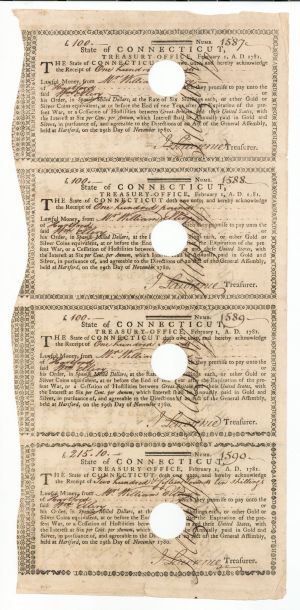 £ 100 NUMB. 1587
State of CONNECTICUT,
TREASURY-OFFICE, February 1, A. D. 1781.
THE State of CONNECTICUT doth owe, and hereby acknowledge
the Receipt of One hund
Lawful Money, from Mr. William they promise to pay unto the
said
his Order, in Spanish Milled Dollars, at the Rate of Six Shillings each, or other Gold or
Silver Coins equivalent, at or before the End of one Year after the Expiration of the present
War, or a Cessation of Hostilities between Great-Britain United States, with
the Interest at Six per Cent. per Annum, which Interest shall be Annually paid in Gold and
Silver, in pursuance of, and agreeable to the Direction of an Act of the General Assembly,
held at Hartford, on the 29th Day of November 1780.
Treasurer.
£ 100 NUMB. 1588
State of CONNECTICUT,
TREASURY-OFFICE, February 1, A. D. 1781.
THE State of CONNECTICUT doth owe, and hereby acknowledge
the Receipt of One hund
Lawful Money, from Mr. William they promise to pay unto the
said
his Order, in Spanish Milled Dollars, each, or other Gold or
Silver Coins equivalent, at or before the End Expiration of the present
War, or a Cessation of Hostilities between United States, with
the Interest at Six per Cent. per Annum, which Annually paid in Gold and
Silver, in pursuance of, and agreeable to the Direction of an Act of the General Assembly,
held at Hartford, on the 29th Day of November 1780.
Treasurer.
£ 100 NUMB. 1589
State of CONNECTICUT,
TREASURY-OFFICE, February 1, A. D. 1781.
THE State of CONNECTICUT doth owe, and hereby acknowledge
the Receipt of One hund
Lawful Money, from Mr. William they promise to pay unto the
said
his Order, in Spanish Milled Dollars, each, or other Gold or
Silver Coins equivalent, at or before the End Expiration of the present
War, or a Cessation of Hostilities between United States, with
the Interest at Six per Cent. per Annum, which Annually paid in Gold and
Silver, in pursuance of, and agreeable to the Direction of an Act of the General Assembly,
held at Hartford, on the 29th Day of November 1780.
Treasurer.
£ 215.10 NUMB. 1590
State of CONNECTICUT,
TREASURY-OFFICE, February 1, A. D. 1781.
THE State of CONNECTICUT doth owe, and hereby acknowledge
the Receipt of Two hundred fifteen pounds ten shillings
Lawful Money, from Mr. William they promise to pay unto the
said
his Order, in Spanish Milled Dollars, each, or other Gold or
Silver Coins equivalent, at or before the End Expiration of the present
War, or a Cessation of Hostilities between United States, with
the Interest at Six per Cent. per Annum, which Annually paid in Gold and
Silver, in pursuance of, and agreeable to the Direction of an Act of the General Assembly,
held at Hartford, on the 29th Day of November 1780.
Treasurer.